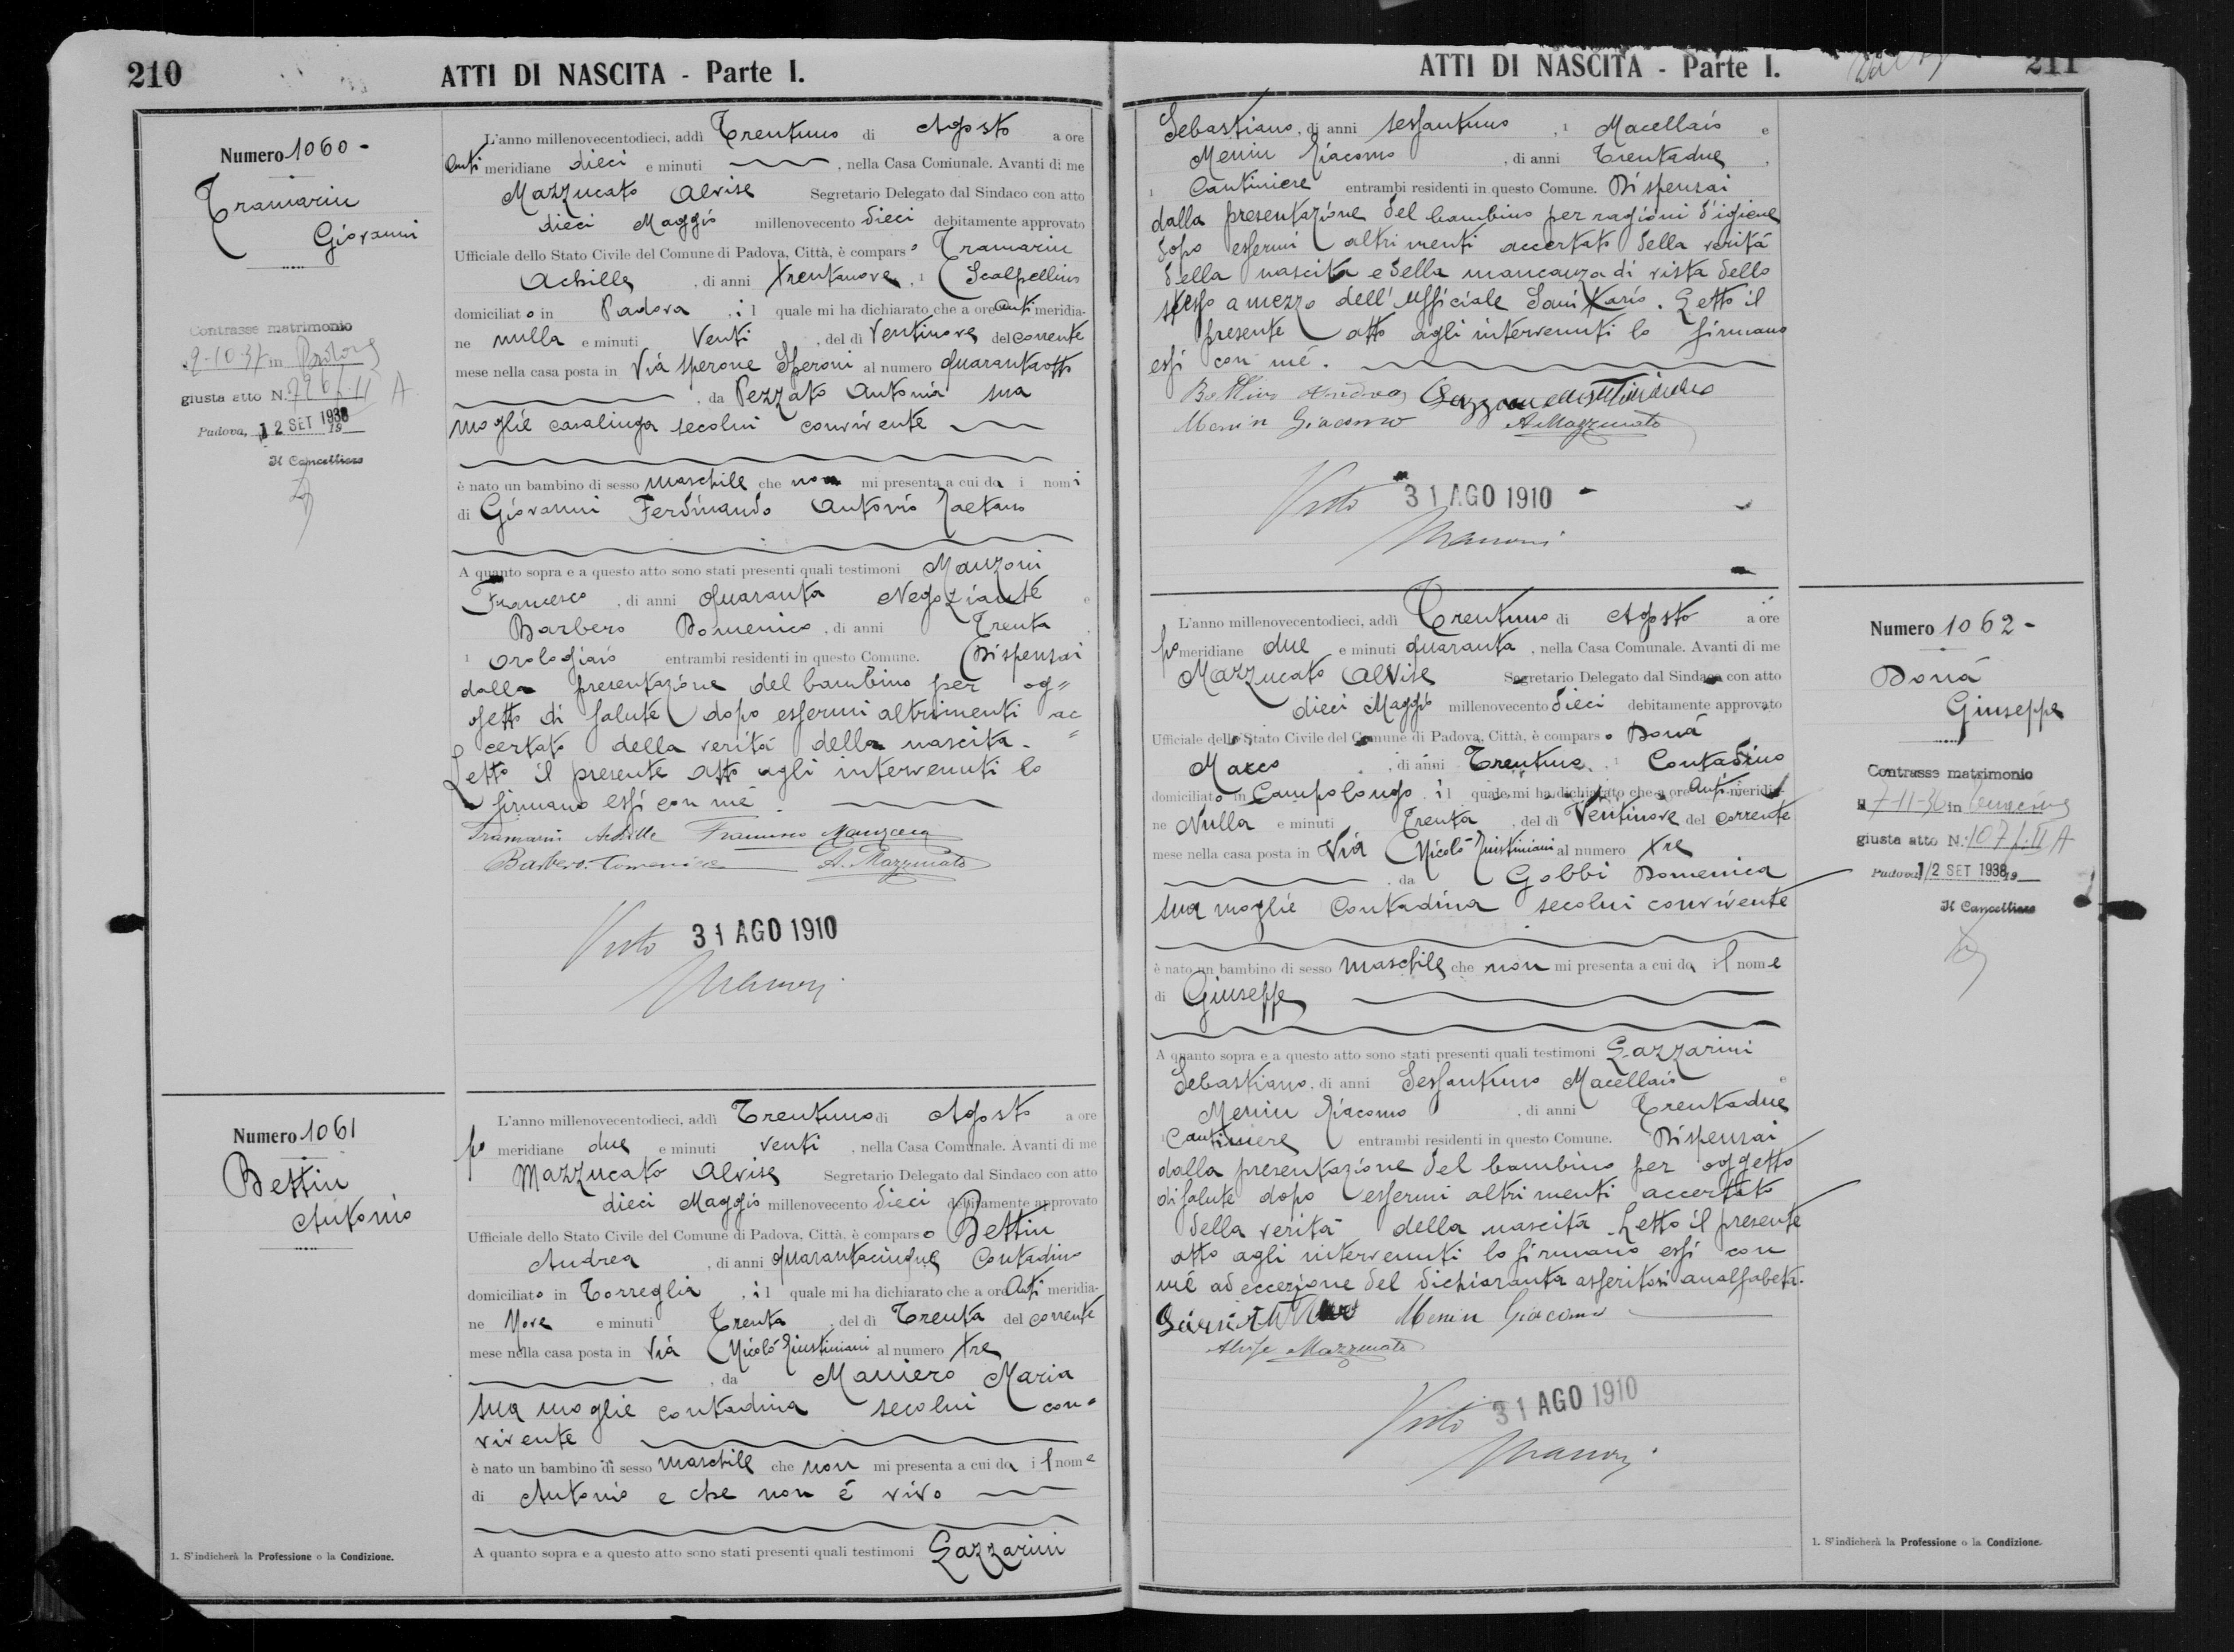 210
ATTI DI NASCITA - Parte I.
Numero 1060 -
Tramarin
Giovanni
Contrasse matrimonio
9-10-37 in Padova
giusta atto N. 796 I. II A
Padova, 12 SET 1938 19
Il Cancelliere
L'anno millenovecentodieci, addì Trentuno di Agosto a ore
Anti meridiane dieci e minuti , nella Casa Comunale. Avanti di me
Mazzucato Alvise Segretario Delegato dal Sindaco con atto
dieci Maggio millenovecento dieci debitamente approvato
Ufficiale dello Stato Civile del Comune di Padova, Città, è comparso Tramarin
Achille, di anni trentanove, 1 Scalpellino
domiciliato in Padova, il quale mi ha dichiarato che a ore Anti meridia-
ne nulla e minuti Venti, del dì Ventinove del corrente
mese nella casa posta in Via Sperone Speroni al numero quarantaotto
, da Pezzato Antonia sua
moglie casalinga secolui convivente
è nato un bambino di sesso maschile che non mi presenta a cui da i nomi
di Giovanni Ferdinando Antonio Gaetano
A quanto sopra e a questo atto sono stati presenti quali testimoni Manzoni
Francesco, di anni quaranta Negoziante e
Barbero Domenico, di anni Trenta,
1 Orologiaio entrambi residenti in questo Comune. Dispensai
dalla presentazione del bambino per og=
getto di salute dopo essermi altrimenti ac
=certato della verità della nascita.
Letto il presente atto agli intervenuti lo
firmano essi con me.
Tramarin Achille Francesco Manzoni
Barbero Domenico A. Mazzucato
Visto 31 AGO 1910
Numero 1061
Bettin
Antonio
L'anno millenovecentodieci, addì Trentuno di Agosto a ore
po meridiane due e minuti venti, nella Casa Comunale. Avanti di me
Mazzucato Alvise Segretario Delegato dal Sindaco con atto
dieci Maggio millenovecento dieci debitamente approvato
Ufficiale dello Stato Civile del Comune di Padova, Città, è comparso Bettin
Andrea, di anni quarantacinque Contadino
domiciliato in Torreglia, il quale mi ha dichiarato che a ore Anti meridia-
ne Nove e minuti Trenta, del dì Trenta del corrente
mese nella casa posta in Via Nicolò Giustiniani al numero tre
, da Maniero Maria
sua moglie contadina secolui con=
vivente
è nato un bambino di sesso maschile che non mi presenta a cui da il nome
di Antonio e che non è vivo
A quanto sopra e a questo atto sono stati presenti quali testimoni Gazzarini
1. S'indicherà la Professione o la Condizione.
ATTI DI NASCITA - Parte I.
211
Sebastiano, di anni sessantuno, 1 Macellaio e
Menin Giacomo, di anni Trentadue,
1 Cantiniere entrambi residenti in questo Comune. Dispensai
dalla presentazione del bambino per ragioni d'igiene
dopo essermi altrimenti accertato della verità
della nascita e della mancanza di vista dello
stesso a mezzo dell'Ufficiale Sanitario. Letto il
presente atto agli intervenuti lo firmano
essi con me.
Bettin Andrea
Menin Giacomo A Mazzucato
Visto 31 AGO 1910
Numero 1062 -
Donà
Giuseppe
Contrasse matrimonio
il 7-11-36 in
giusta atto N. 107 I. II A
Padova 12 SET 1938 19
Il Cancelliere
L'anno millenovecentodieci, addì Trentuno di Agosto a ore
po meridiane due e minuti quaranta, nella Casa Comunale. Avanti di me
Mazzucato Alvise Segretario Delegato dal Sindaco con atto
dieci Maggio millenovecento dieci debitamente approvato
Ufficiale dello Stato Civile del Comune di Padova, Città, è comparso Donà
Marco, di anni Trentuno, 1 Contadino
domiciliato in Campolongo, il quale mi ha dichiarato che a ore Anti meridia-
ne Nulla e minuti Trenta, del dì Ventinove del corrente
mese nella casa posta in Via Nicolò Giustiniani al numero tre
, da Gobbi Domenica
sua moglie Contadina secolui convivente
è nato un bambino di sesso maschile che non mi presenta a cui da il nome
di Giuseppe
A quanto sopra e a questo atto sono stati presenti quali testimoni Gazzarini
Sebastiano, di anni Sessantuno Macellaio e
Menin Giacomo, di anni Trentadue
1 Cantiniere entrambi residenti in questo Comune. Dispensai
dalla presentazione del bambino per oggetto
di salute dopo essermi altrimenti accertato
della verità della nascita. Letto il presente
atto agli intervenuti lo firmano essi con
me ad eccezione del dichiarante asseritosi analfabeta.
Menin Giacomo
Alvise Mazzucato
Visto 31 AGO 1910
1. S'indicherà la Professione o la Condizione.